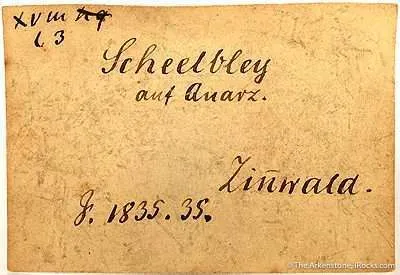 XVIII
63
Scheelbley
auf Quarz.
Zin̄wald.
J. 1835. 35.
© The Arkenstone, iRocks.com